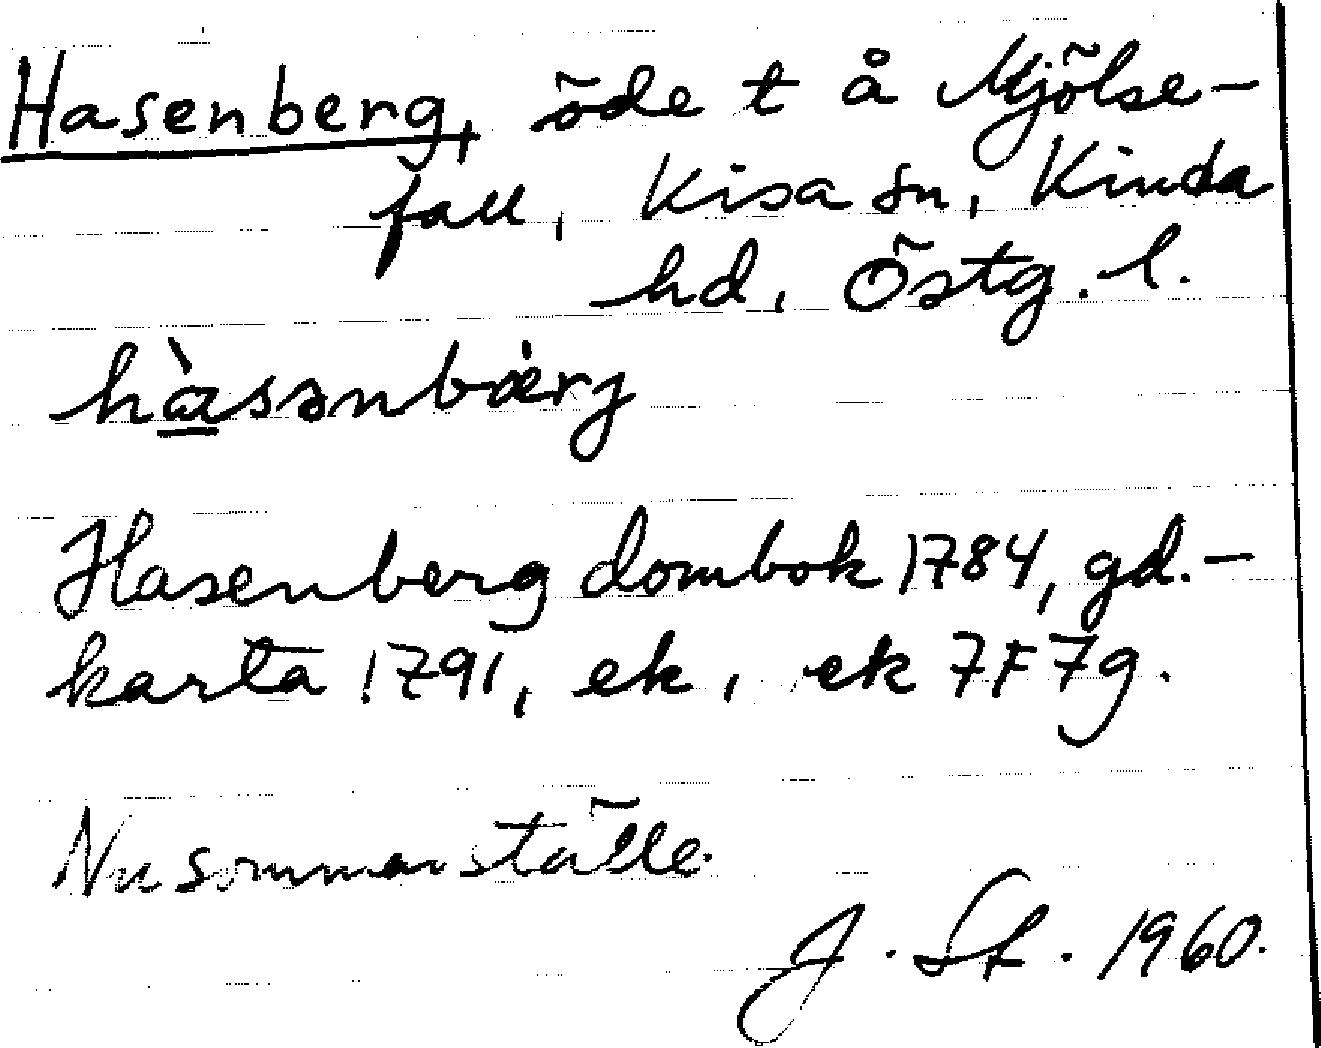 Hasenberg, öde t å Mjölse-
fall, Kisa sn, Kinda
hd, Östg. l.
hàsənbæ̀rj
Hasenberg dombok 1784, gd.-
karta 1791, ek, ek 7F7g.
Nu sommarställe.
J. St. 1960.